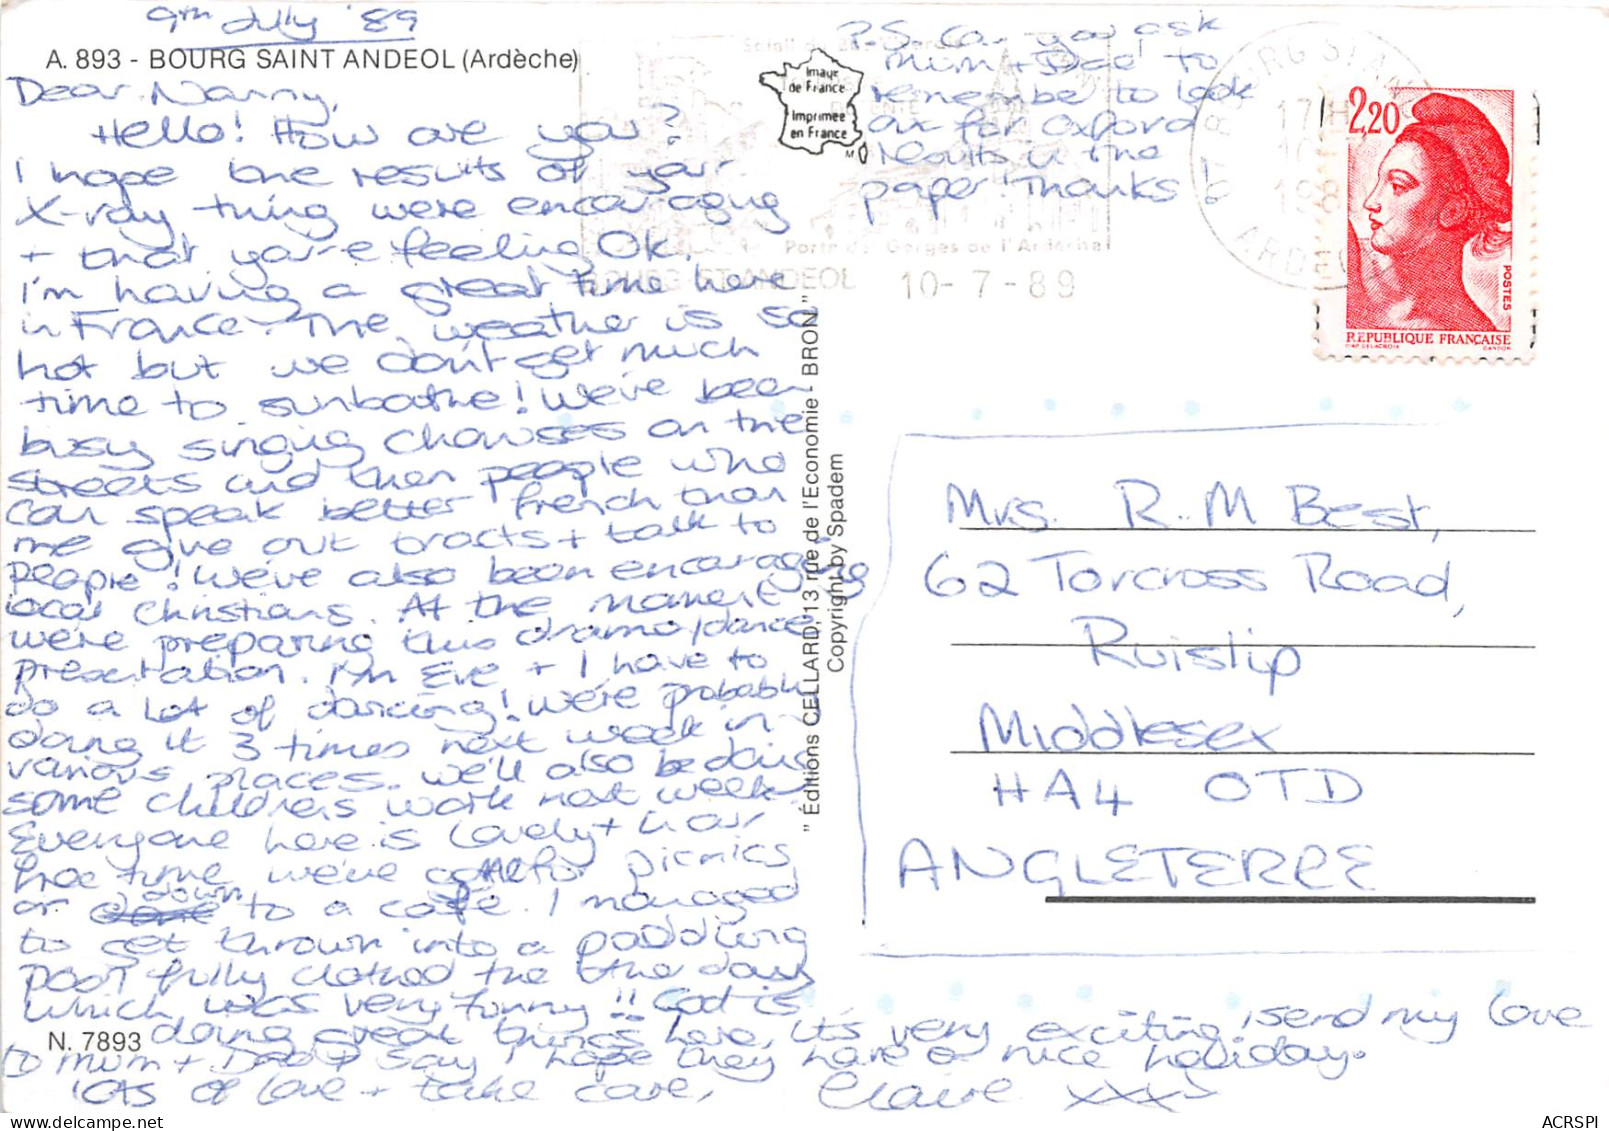 9th July '89
A. 893 - BOURG SAINT ANDEOL (Ardèche)
Dear Nanny,
Hello! How are you?
I hope the results of your
X-ray thing were encouraging
+ that you're feeling OK.
I'm having a great time here
in France. The weather is so
hot but we don't get much
time to sunbathe! We've been
busy singing choruses on the
streets and then people who
can speak better French than
me give out tracts + talk to
people! We've also been encouraging
local Christians. At the moment
we're preparing this drama/dance
presentation. I'm Eve + I have to
do a lot of dancing! We're probably
doing it 3 times next week in
various places. We'll also be doing
some childrens work next week.
Everyone here is lovely + in our
free time we've gone for picnics
or down to a café. I managed
to get thrown into a paddling
pool fully clothed the other day
which was very funny!! God is
doing great things here, it's very exciting! Send my love
to Mum + Dad + say I hope they have a nice holiday.
lots of love + take care, Claire xxx
N. 7893
P.S. Can you ask
Mum + Dad to
remember to look
out for Oxford
results in the
paper! Thanks
Image
de France
Imprimée
en France
M
Porte des Gorges de l'Ardèche
BOURG ST ANDEOL 10-7-89
BOURG ST ANDEOL
17H
10-
198
ARDECHE
2,20
POSTES
REPUBLIQUE FRANÇAISE
D'AP DELACROIX GANDON
" Éditions CELLARD, 13 rue de l'Economie - BRON "
Copyright by Spadem
Mrs. R. M Best,
62 Torcross Road,
Ruislip
Middlesex
HA4 0TD
ANGLETERRE
ACRSPI